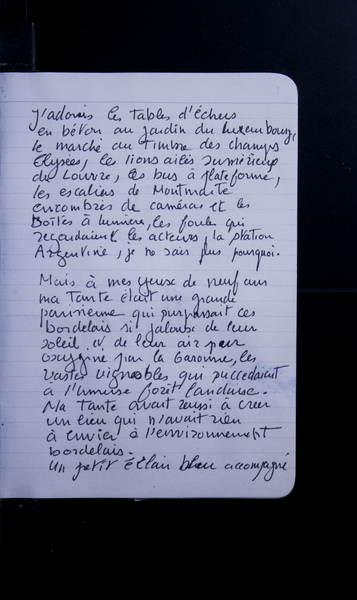 J'adorais les tables d'échecs
en béton au jardin du Luxembourg,
le marché au timbre des champs
Elysées, les lions ailés sumériens
du Louvre, les bus à plateforme,
les escaliers de Montmartre
encombrés de caméras et les
Boîtes à lumière, les foules qui
regardaient les acteurs, la station
Argentine, je ne sais plus pourquoi.
Mais à mes yeux de neuf ans
ma Tante était une grande
parisienne qui surpassait ces
bordelais si jaloux de leur
soleil et de leur air pur
oxygéné par la Garonne, les
vastes vignobles qui succédaient
à l'immense forêt landaise.
Ma Tante avait réussi à créer
un lieu qui n'avait rien
à envier à l'environnement
bordelais.
Un petit éclair bleu accompagné